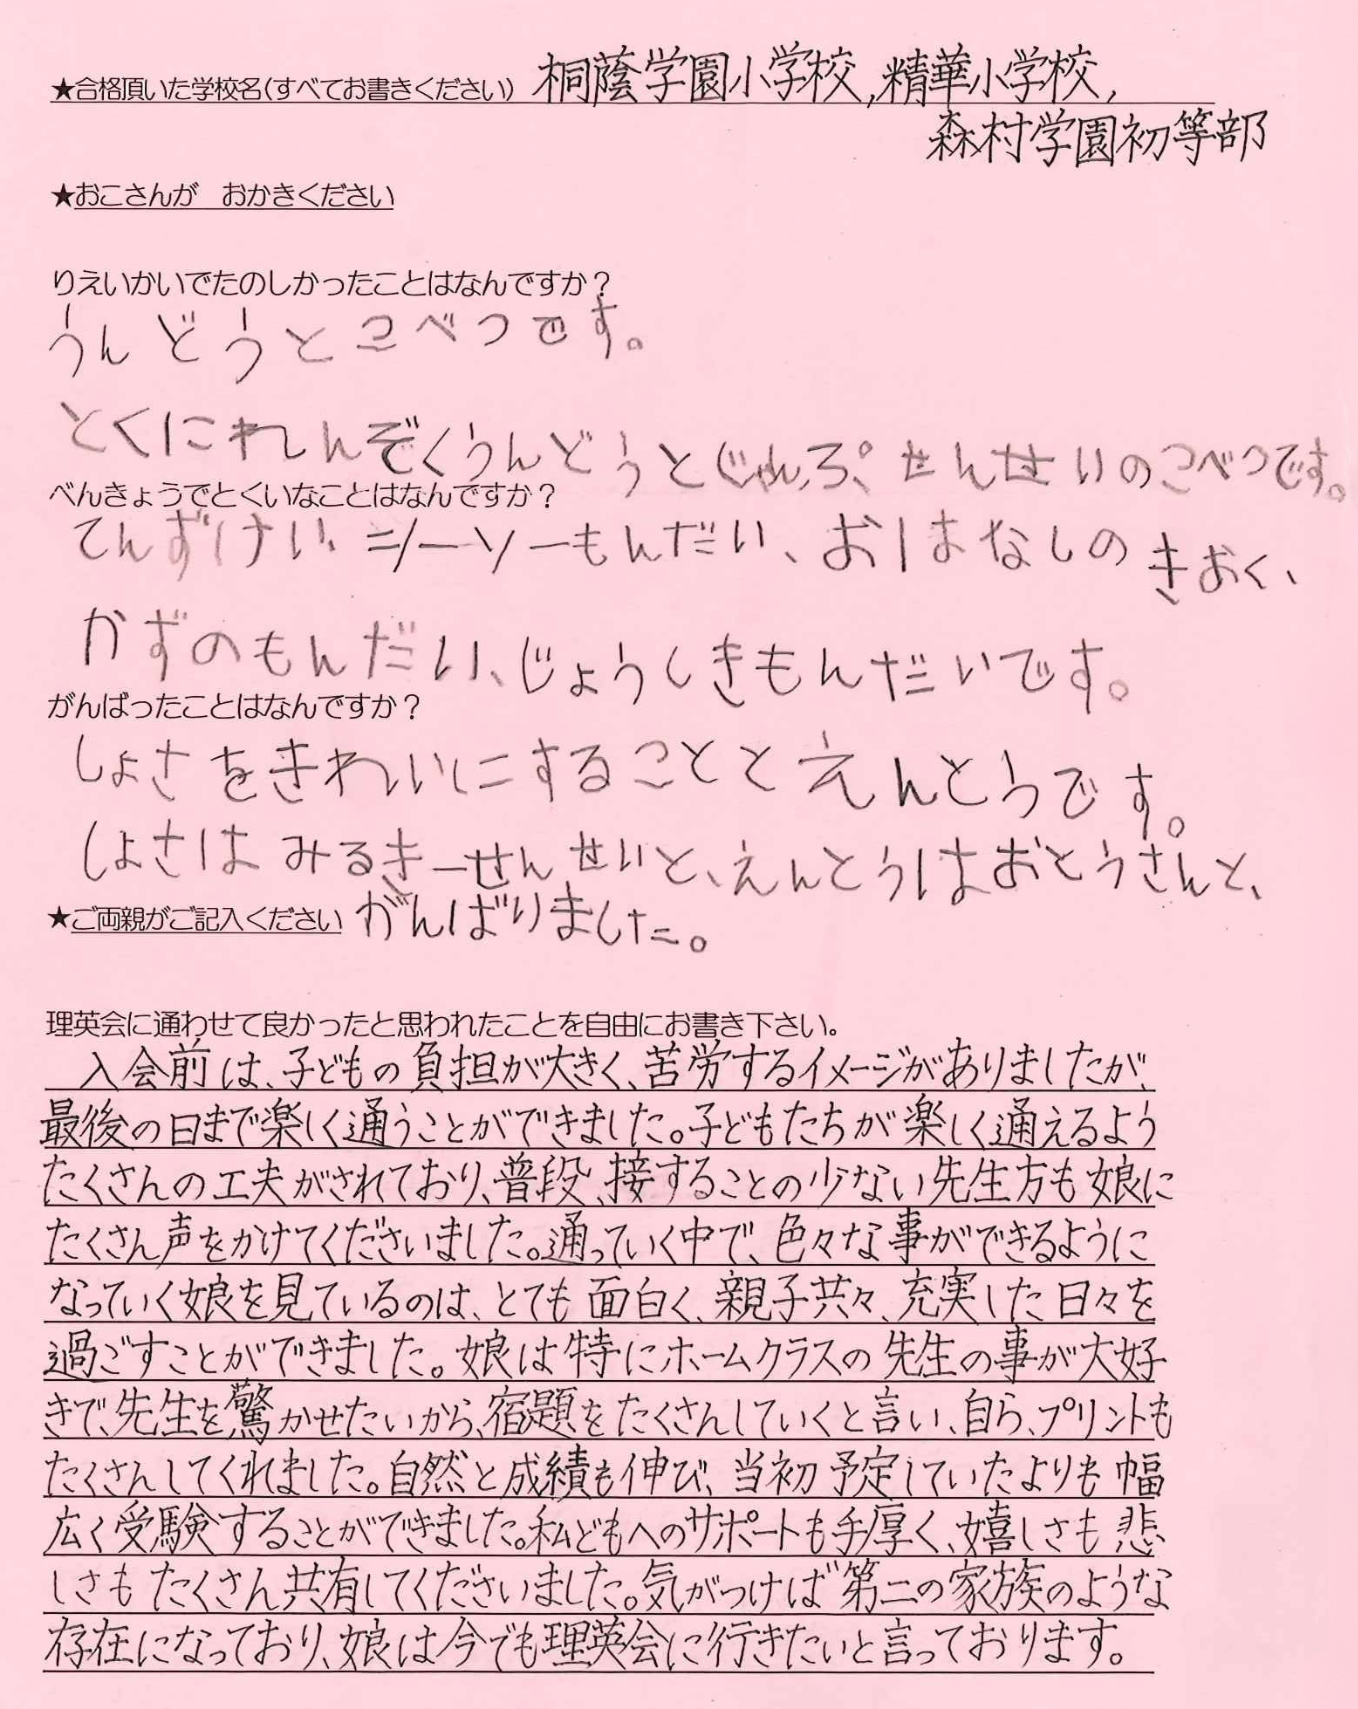 ★合格頂いた学校名(すべてお書きください) 桐蔭学園小学校,精華小学校,
森村学園初等部
★おこさんが　おかきください
りえいかいでたのしかったことはなんですか？
うんどうとこべつです。
とくにれんぞくうんどうとじゃんぷ、せんせいのこべつです。
べんきょうでとくいなことはなんですか？
てんずけい、シーソーもんだい、おはなしのきおく、
かずのもんだい、じょうしきもんだいです。
がんばったことはなんですか？
しょさをきれいにすることとえんとうです。
しょさはみるきーせんせいと、えんとうはおとうさんと、
★ご両親がご記入ください がんばりました。
理英会に通わせて良かったと思われたことを自由にお書き下さい。
入会前は、子どもの負担が大きく、苦労するイメージがありましたが、
最後の日まで楽しく通うことができました。子どもたちが楽しく通えるよう
たくさんの工夫がされており、普段、接することの少ない先生方も娘に
たくさん声をかけてくださいました。通っていく中で、色々な事ができるように
なっていく娘を見ているのは、とても面白く、親子共々、充実した日々を
過ごすことができました。娘は特にホームクラスの先生の事が大好
きで、先生を驚かせたいから、宿題をたくさんしていくと言い、自ら、プリントも
たくさんしてくれました。自然と成績も伸び、当初予定していたよりも幅
広く受験することができました。私どもへのサポートも手厚く、嬉しさも悲
しさもたくさん共有してくださいました。気がつけば第二の家族のような
存在になっており、娘は今でも理英会に行きたいと言っております。